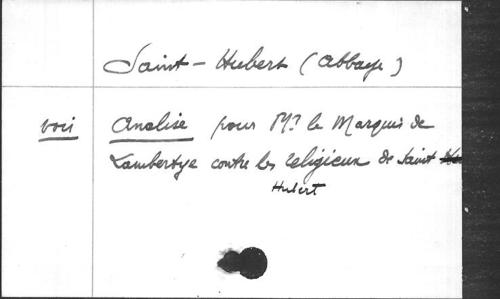 Saint-Hubert (Abbaye)
voir Analise pour Mr. le Marquis de
Lambertye contre les religieux de Saint
Hubert